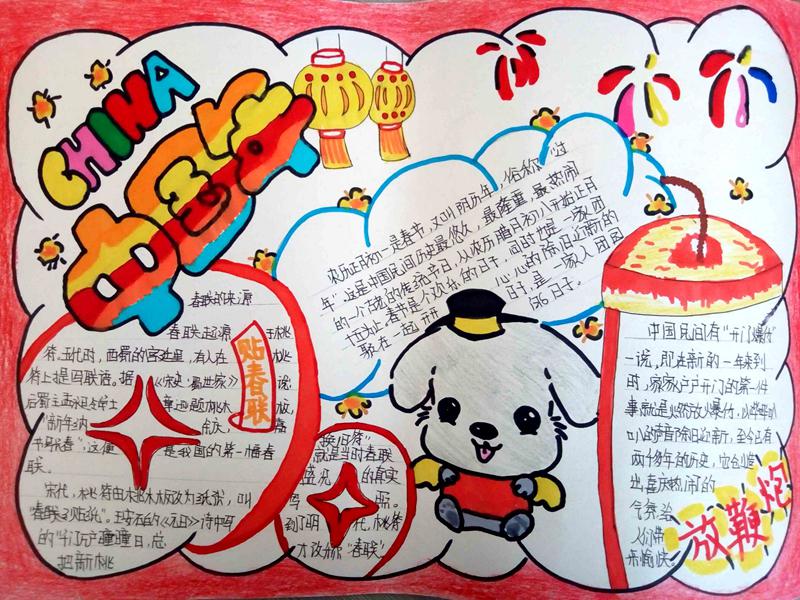 CHINA
中国年
农历正月初一是春节,又叫阴历年,俗称"过
年",这是中国民间历史最悠久,最隆重,最热闹
的一个古老的传统节日,从农历腊月初八开始正月
十五为止,春节是个欢乐的日子,同时也是一家团
聚在一起,开 心心的除旧迎新的
日子,是一家人团圆
的日子。
春联的来源
贴春联
春联起源 于桃
符。五代时,西蜀的宫廷里,有人在 桃
符上提写联语。据 《宋史·蜀世家》 说,
后蜀主孟 学士 章逊题桃木 板,
"新年纳 余庆, 嘉
节号长春",这便 是我国的第一幅春
联。
宋代,桃符由桃木板改为纸张,叫
"春联 贴纸"。王安石的《元日》诗中写
的"千门万户曈曈日,总
把新桃
换旧符"
就是当时春联
盛况 的真实
写 照。
到了明 代,桃符
才改称"春联"
中国民间有"开门爆竹"
一说,即在新的一年来到
时,家家户户开门的第一件
事就是燃放爆竹,以哔哔叭
叭的声音除旧迎新,至今已有
两千多年的历史,它创造
出喜庆热闹的
气氛,给
人们带
来愉快。
放鞭炮